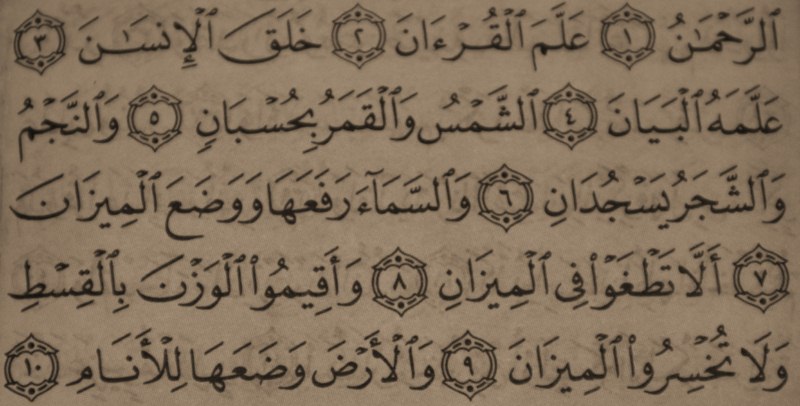 ٱلرَّحْمَـٰنُ ١ عَلَّمَ ٱلْقُرْءَانَ ٢ خَلَقَ ٱلْإِنسَـٰنَ ٣
عَلَّمَهُ ٱلْبَيَانَ ٤ ٱلشَّمْسُ وَٱلْقَمَرُ بِحُسْبَانٍ ٥ وَٱلنَّجْمُ
وَٱلشَّجَرُ يَسْجُدَانِ ٦ وَٱلسَّمَآءَ رَفَعَهَا وَوَضَعَ ٱلْمِيزَانَ
٧ أَلَّا تَطْغَوْا۟ فِى ٱلْمِيزَانِ ٨ وَأَقِيمُوا۟ ٱلْوَزْنَ بِٱلْقِسْطِ
وَلَا تُخْسِرُوا۟ ٱلْمِيزَانَ ٩ وَٱلْأَرْضَ وَضَعَهَا لِلْأَنَامِ ١٠